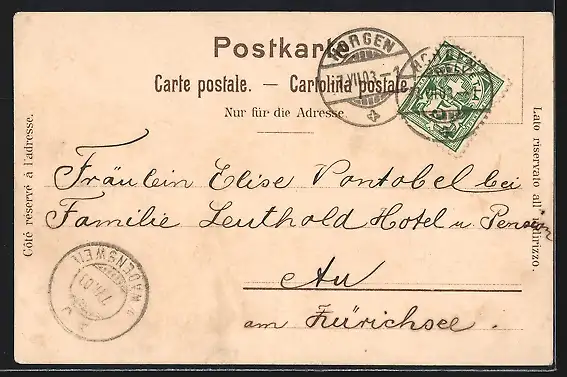 Postkarte
Carte postale. — Cartolina postale.
Nur für die Adresse
HORGEN
7.VII.03.-1
HORGEN
VII.03.-1
HELVETIA
Côté réservé à l'adresse.
Lato riservato all'indirizzo.
Fräulein Elise Vontobel bei
Familie Leuthold Hotel u Pension
Au
am Zürichsee.
WAEDENSWEIL
VII.03